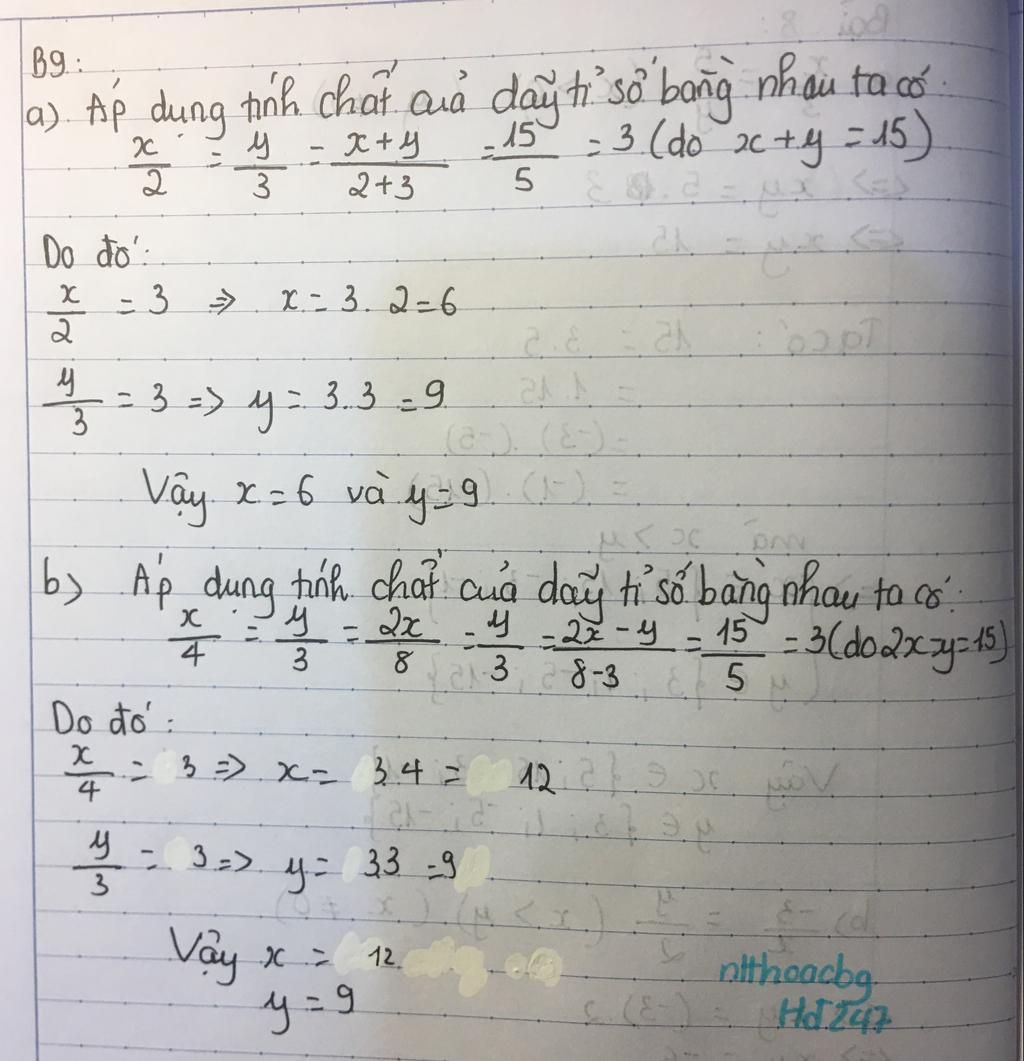 B9:
a). Áp dụng tính chất của dãy tỉ số bằng nhau ta có.
x/2 = y/3 = x+y/2+3 = 15/5 = 3 (do x+y = 15)
Do đó:
x/2 = 3 => x = 3.2=6
y/3 = 3 => y = 3.3 =9
Vậy x = 6 và y=9
b) Áp dụng tính chất của dãy tỉ số bằng nhau ta có:
x/4 = y/3 = 2x/8 = y/3 = 2x-y/8-3 = 15/5 = 3(do 2x-y=15)
Do đó:
x/4 = 3 => x = 3.4 = 12
y/3 = 3 => y = 3.3 =9
Vậy x = 12
y = 9
nlthoacbg
Hd247